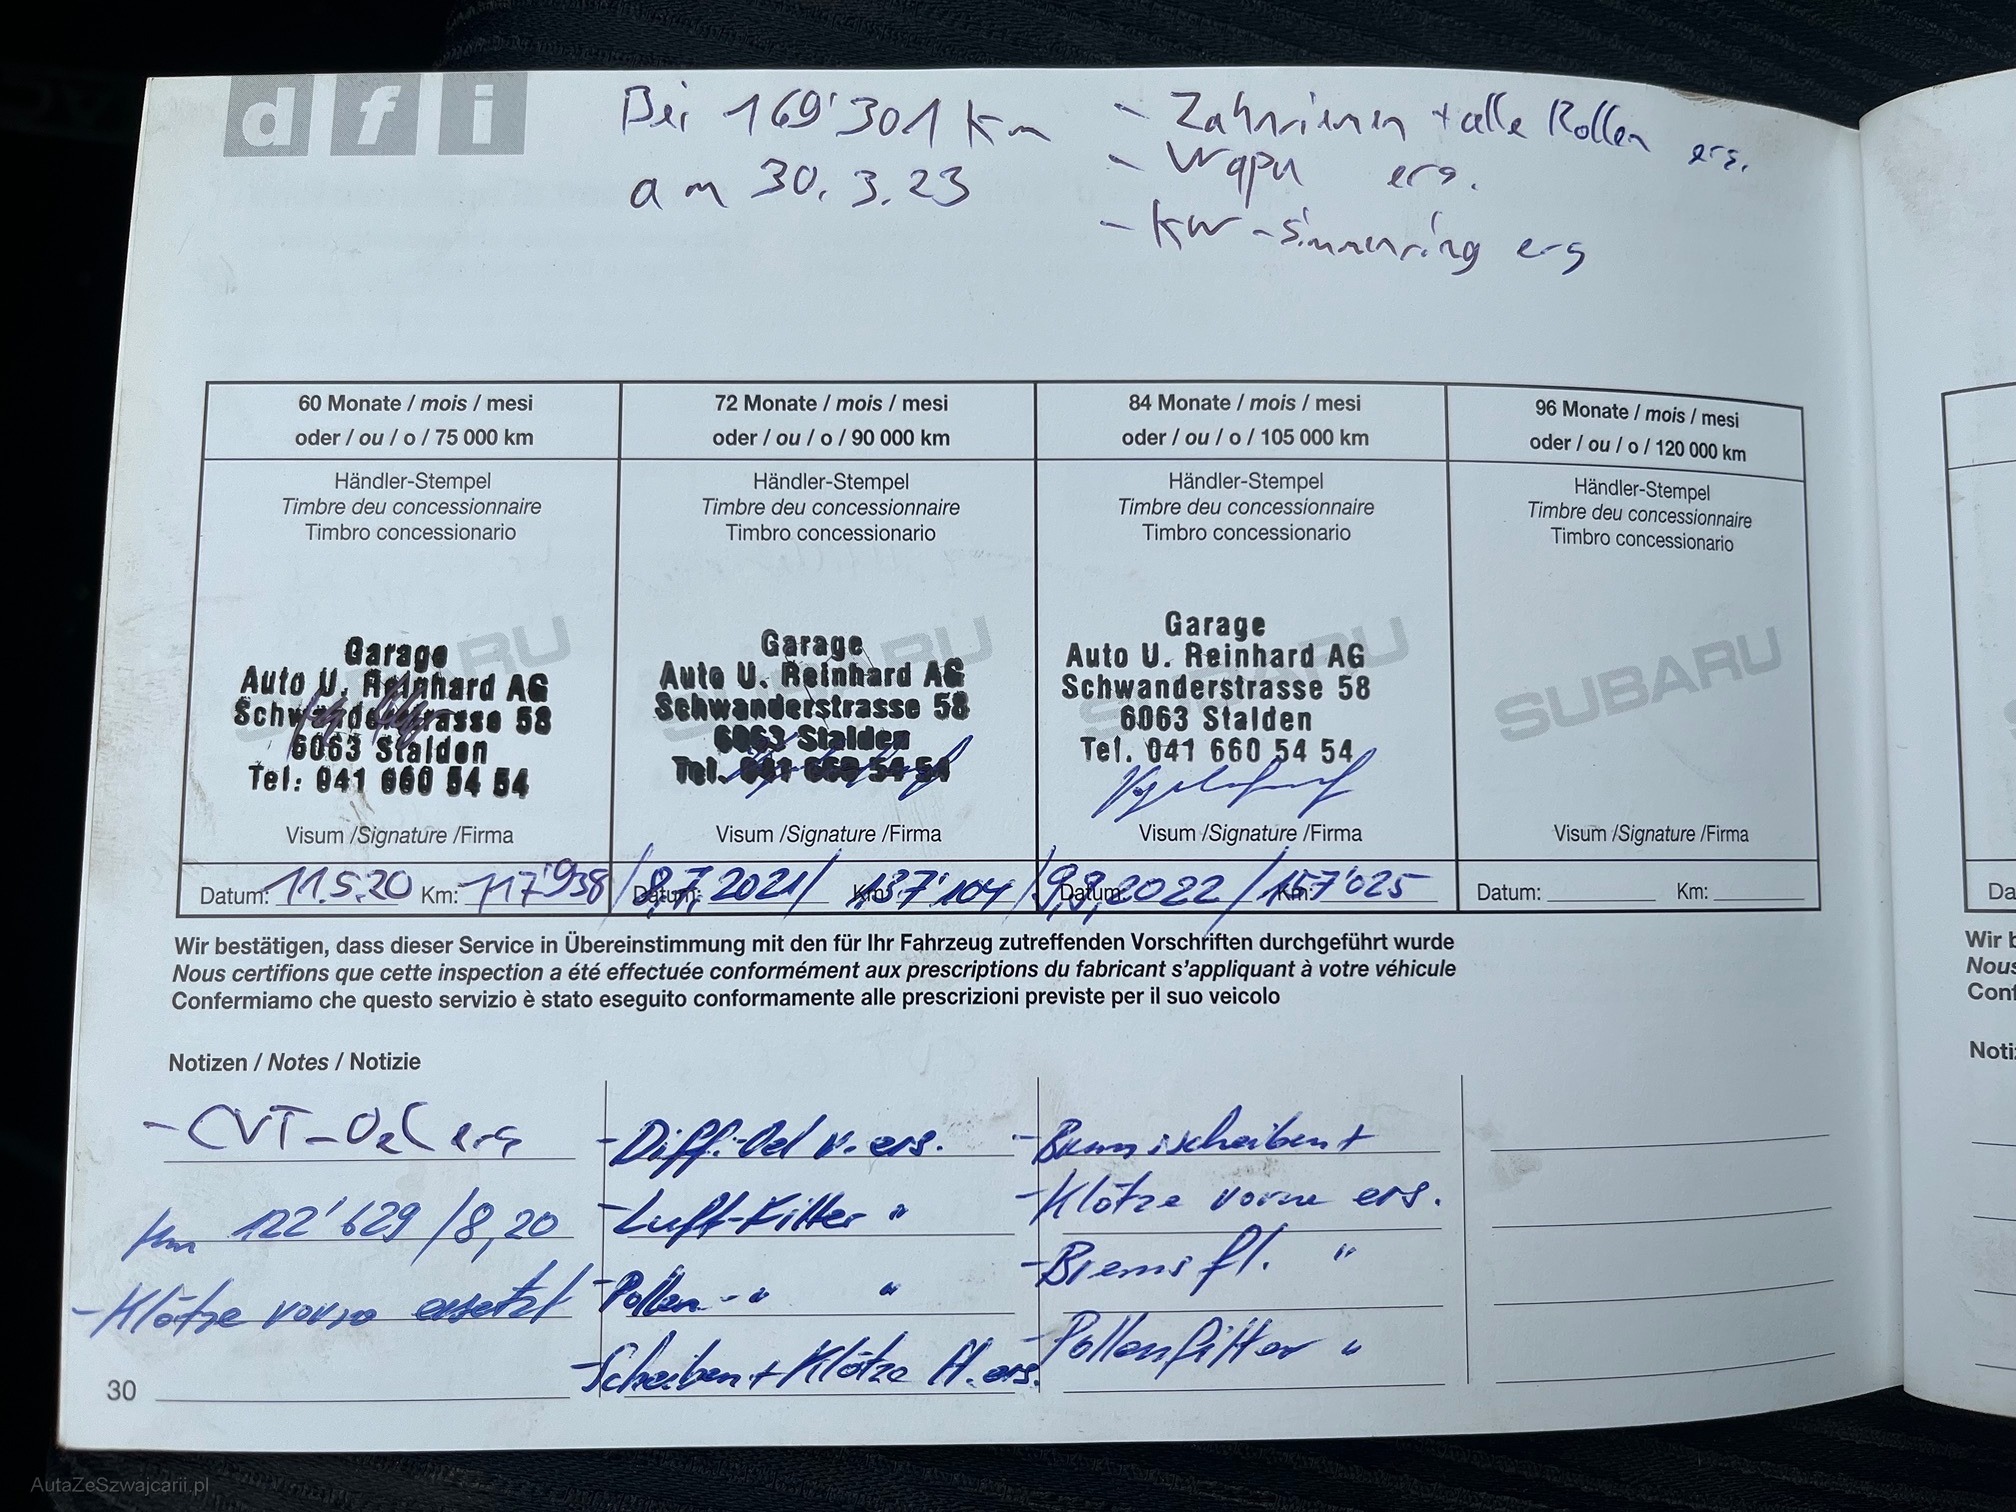 d f i
Bei 169'301 Km
am 30.3.23
- Zahnriemen + alle Rollen ers.
- Wapu ers.
- KW-Simmerring ers
60 Monate / mois / mesi
oder / ou / o / 75 000 km
Händler-Stempel
Timbre deu concessionnaire
Timbro concessionario
SUBARU
Garage
Auto U. Reinhard AG
Schwanderstrasse 58
6063 Stalden
Tel. 041 660 54 54
Visum /Signature /Firma
Datum: 11.5.20 Km: 117'938
72 Monate / mois / mesi
oder / ou / o / 90 000 km
Händler-Stempel
Timbre deu concessionnaire
Timbro concessionario
SUBARU
Garage
Auto U. Reinhard AG
Schwanderstrasse 58
6063 Stalden
Tel. 041 660 54 54
Visum /Signature /Firma
Datum: 8.7.2021 Km: 137'104
84 Monate / mois / mesi
oder / ou / o / 105 000 km
Händler-Stempel
Timbre deu concessionnaire
Timbro concessionario
SUBARU
Garage
Auto U. Reinhard AG
Schwanderstrasse 58
6063 Stalden
Tel. 041 660 54 54
Visum /Signature /Firma
Datum: 9.9.2022 / Km: 157'025
96 Monate / mois / mesi
oder / ou / o / 120 000 km
Händler-Stempel
Timbre deu concessionnaire
Timbro concessionario
SUBARU
Visum /Signature /Firma
Datum: Km:
Wir bestätigen, dass dieser Service in Übereinstimmung mit den für Ihr Fahrzeug zutreffenden Vorschriften durchgeführt wurde
Nous certifions que cette inspection a été effectuée conformément aux prescriptions du fabricant s'appliquant à votre véhicule
Confermiamo che questo servizio è stato eseguito conformamente alle prescrizioni previste per il suo veicolo
Notizen / Notes / Notizie
- CVT-Oel ers
Km 122'629 / 8,20
- Klötze vorne ersetzt
- Diff.-Oel v. ers.
- Luft-Filter "
- Pollen - " "
- Scheiben + Klötze H. ers.
- Bremsscheiben +
- Klötze vorne ers.
- Bremsfl. "
- Pollenfilter "
30
Da
Wir b
Nous
Conf
Noti
AutaZeSzwajcarii.pl